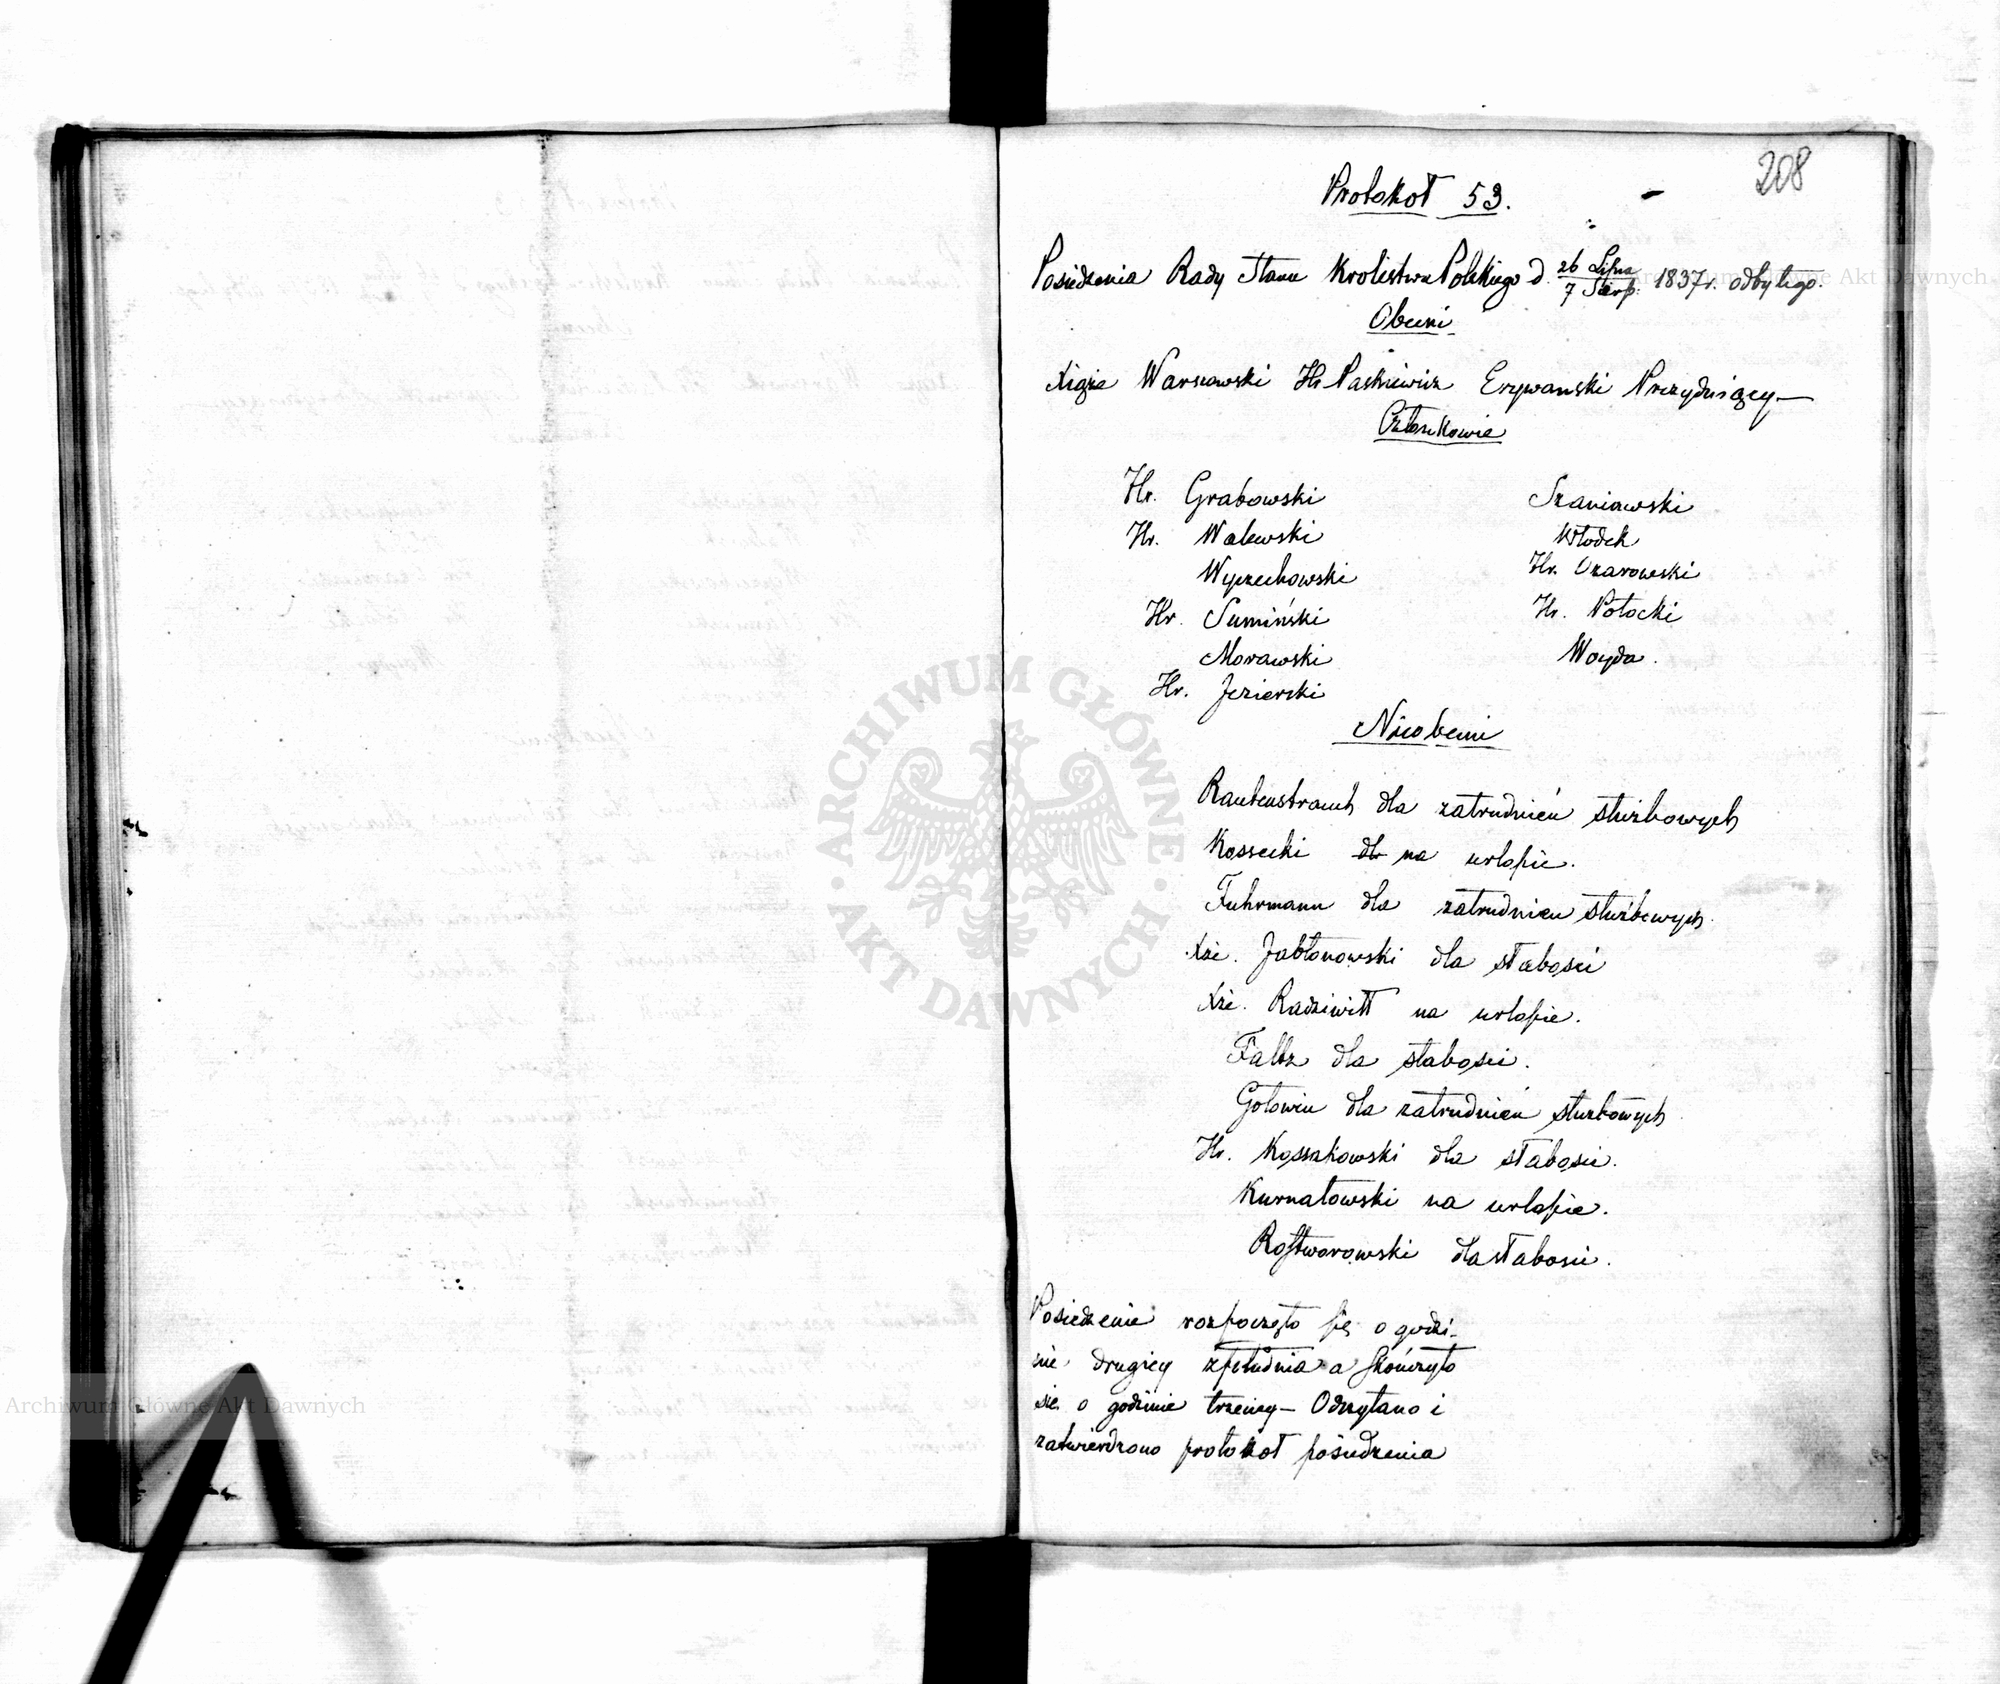 208
Protokoł 53.
Posiedzenia Rady Stanu Krolestwa Polskiego d. 26 Lipca / 7 Sierp: 1837 r. odbytego.
Obecni
Xiąże Warszawski Hr. Paskiewicz Erywański Prezydujący —
Członkowie
Hr. Grabowski
Hr. Walewski
Wyczechowski
Hr. Sumiński
Morawski
Hr. Jezierski
Szaniawski
Włodek
Hr. Ożarowski
Hr. Potocki
Woyda.
Nieobecni
Rautenstrauch dla zatrudnień służbowych
Kossecki dla na urlopie.
Fuhrmann dla zatrudnien służbowych.
Xże. Jabłonowski dla słabości
Xże. Radziwiłł na urlopie.
Faltz dla słabości.
Gołowin dla zatrudnień służbowych
Hr. Kossakowski dla słabości.
Kurnatowski na urlopie.
Rostworowski dla słabości.
Posiedzenie rozpoczęło się o godzi-
nie drugiey z południa a skończyło
się o godzinie trzeciey — Odczytano i
zatwierdzono protokoł posiedzenia
ARCHIWUM GŁÓWNE AKT DAWNYCH
Archiwum Główne Akt Dawnych
Archiwum Główne Akt Dawnych